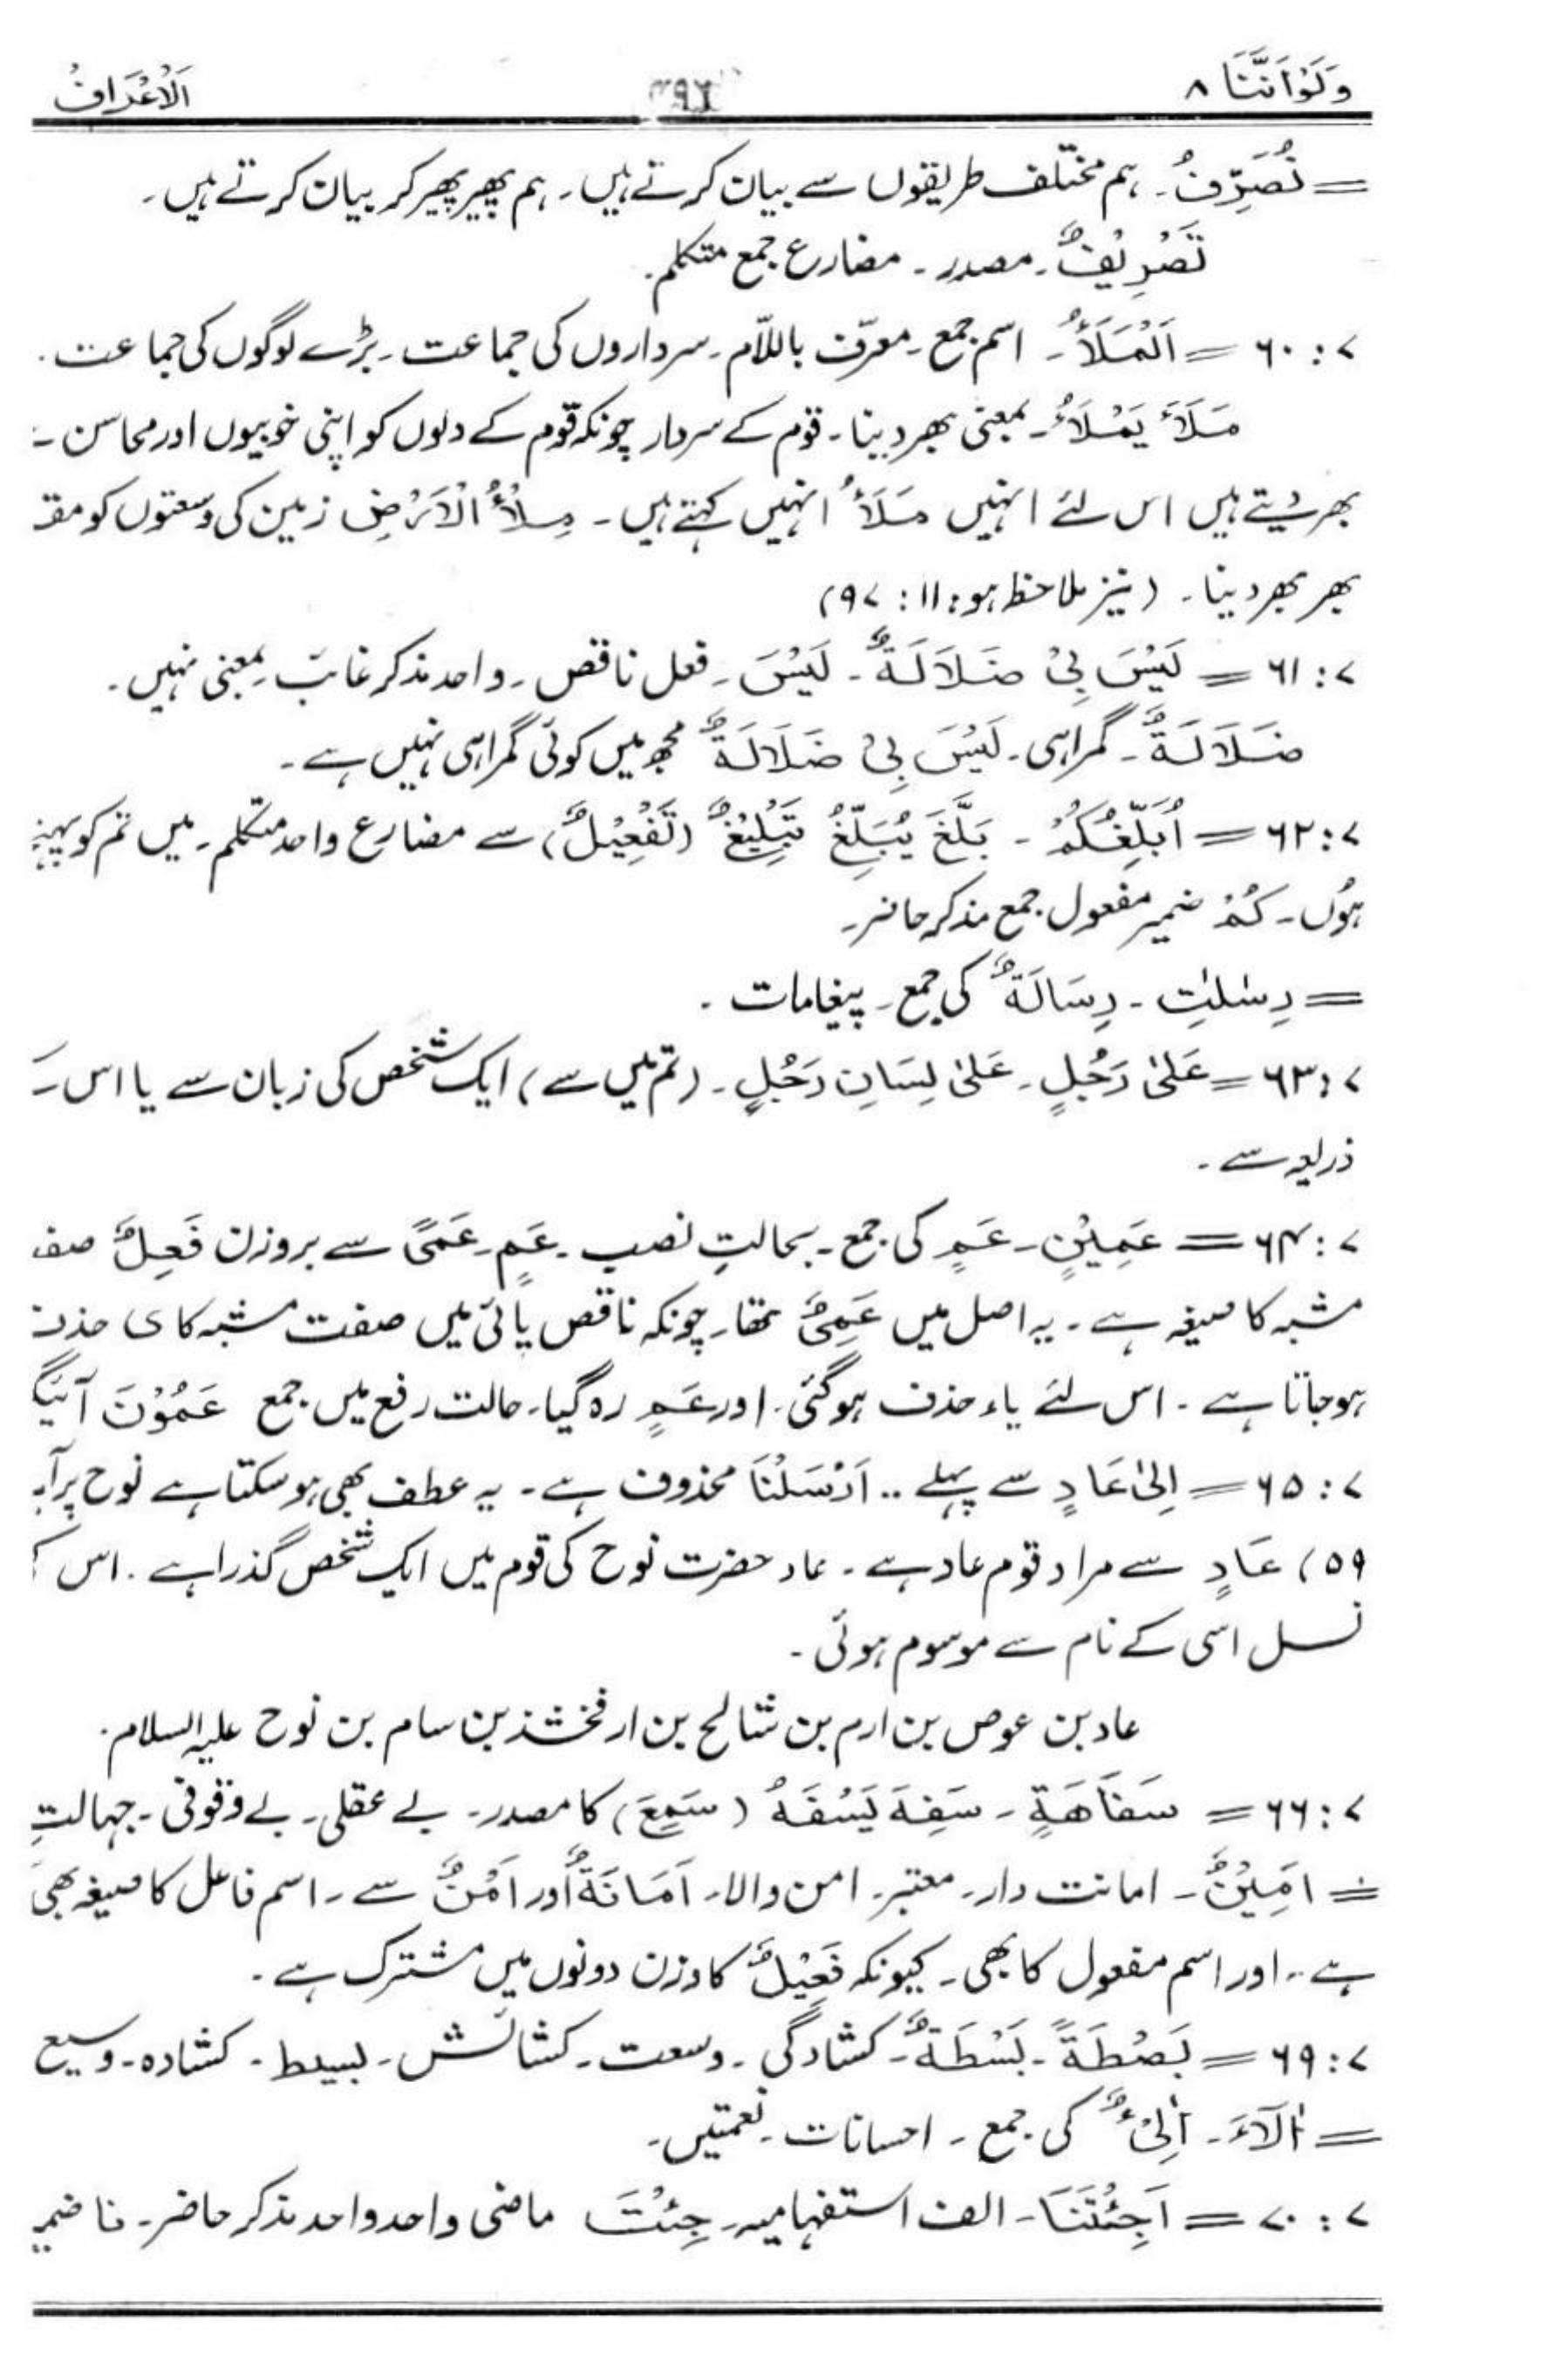 وَلَوْاَنَّنَا ۸
اَلْاَعْرَافُ
= نُصَرِّفُ۔ ہم مختلف طریقوں سے بیان کرتے ہیں۔ ہم پھیر پھیر کر بیان کرتے ہیں۔
تَصْرِیْفٌ۔ مصدر۔ مضارع جمع متکلم۔
۷ : ۶۰ = اَلْمَلَاُ۔ اسم جمع۔ معرّف باللّام۔ سرداروں کی جماعت۔ بڑے لوگوں کی جماعت۔
مَلَأَ یَمْلَأُ۔ بمعنی بھر دینا۔ قوم کے سردار چونکہ قوم کے دلوں کو اپنی خوبیوں اور محاسن
بھر دیتے ہیں اس لئے انہیں مَلَأُ انہیں کہتے ہیں۔ مِلْأُ الْاَرْضِ زمین کی وسعتوں کو
بھر بھر دینا۔ (نیز ملاحظہ ہو: ۱۱ : ۹۷)
۷ : ۶۱ = لَیْسَ بِیْ ضَلَالَةٌ۔ لَیْسَ۔ فعل ناقص۔ واحد مذکر غائب بمعنی نہیں۔
ضَلَالَةٌ۔ گمراہی۔ لَیْسَ بِیْ ضَلَالَةٌ مجھ میں کوئی گمراہی نہیں ہے۔
۷ : ۶۲ = اُبَلِّغُکُمْ۔ بَلَّغَ یُبَلِّغُ تَبْلِیْغٌ (تَفْعِیْلٌ) سے مضارع واحد متکلم۔ میں تم کو
ہوں۔ کُمْ ضمیر مفعول جمع مذکر حاضر۔
= رِسٰلٰتِ۔ رِسَالَةٌ کی جمع۔ پیغامات۔
۷ : ۶۳ = عَلٰی رَجُلٍ۔ عَلٰی لِسَانِ رَجُلٍ۔ (تم میں سے) ایک شخص کی زبان سے یا اس
ذریعہ سے۔
۷ : ۶۴ = عَمِیْنٍ۔ عَمٍ کی جمع۔ بحالتِ نصب۔ عَمٍ۔ عَمًی سے بروزن فَعِلٌ
مشبہ کا صیغہ ہے۔ یہ اصل میں عَمِیٌ تھا۔ چونکہ ناقص یائی میں صفت مشبہ کا ی حذف
ہو جاتا ہے۔ اس لئے یاء حذف ہو گئی۔ اور عَمٍ رہ گیا۔ حالت رفع میں جمع عَمُوْنَ آئیگا
۷ : ۶۵ = اِلٰی عَادٍ سے پہلے .. اَرْسَلْنَا محذوف ہے۔ یہ عطف بھی ہو سکتا ہے نوح پر
۵۹) عَادٍ سے مراد قوم عاد ہے۔ عاد حضرت نوح کی قوم میں ایک شخص گذرا ہے۔ اس
نسل اسی کے نام سے موسوم ہوئی۔
عاد بن عوص بن ارم بن شالح بن ارفخشذ بن سام بن نوح علیہ السلام۔
۷ : ۶۶ = سَفَاهَةٍ۔ سَفِهَ یَسْفَهُ (سَمِعَ) کا مصدر۔ بے عقلی۔ بے وقوفی۔ جہالت
= اَمِیْنٌ۔ امانت دار۔ معتبر۔ امن والا۔ اَمَانَةٌ اور اَمْنٌ سے۔ اسم فاعل کا صیغہ بھی
ہے۔ اور اسم مفعول کا بھی۔ کیونکہ فَعِیْلٌ کا وزن دونوں میں مشترک ہے۔
۷ : ۶۹ = بَصْطَةً۔ بَسْطَةٌ۔ کشادگی۔ وسعت۔ کشائش۔ بسیط۔ کشادہ۔ وسیع
= اٰلَآءَ۔ اَلِیْءٌ کی جمع۔ احسانات۔ نعمتیں۔
۷ : ۷۰ = اَجِئْتَنَا۔ الف استفہامیہ۔ جِئْتَ ماضی واحد واحد مذکر حاضر۔ نا ضمیر